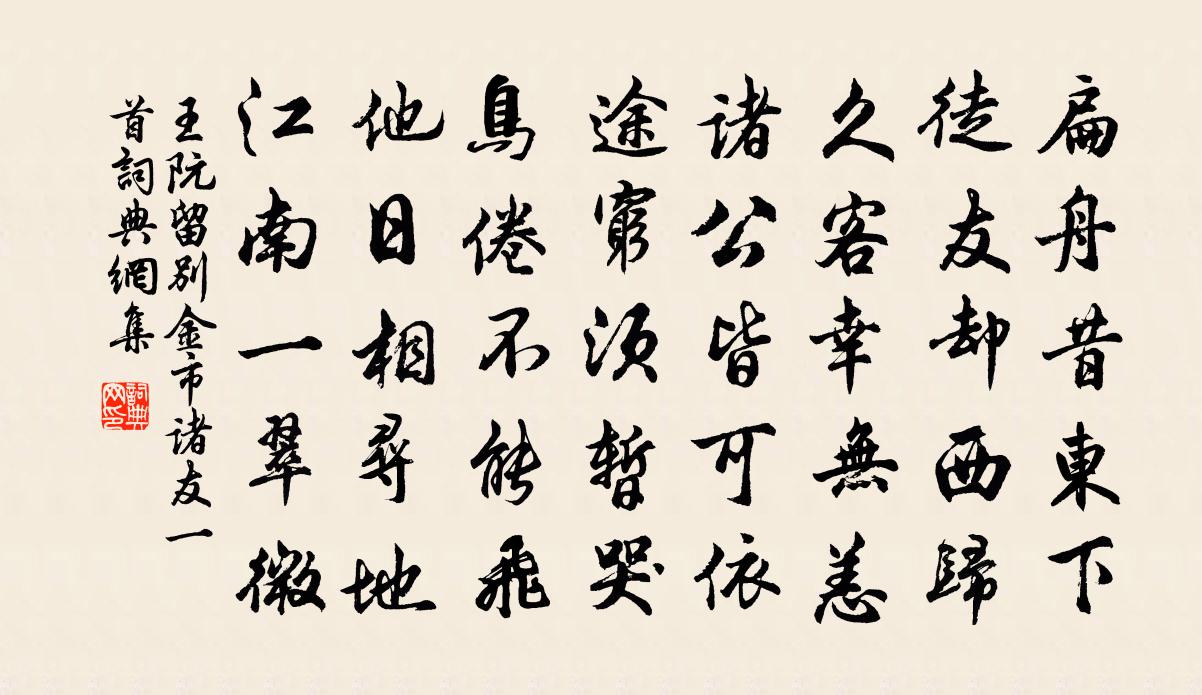 扁舟昔東下
徒友却西歸
久客幸無恙
诸公皆可依
途窮須暫哭
鳥倦不能飛
他日相尋地
江南一翠微
王阮留别金市诸友一
首詞典網集
詞典网印